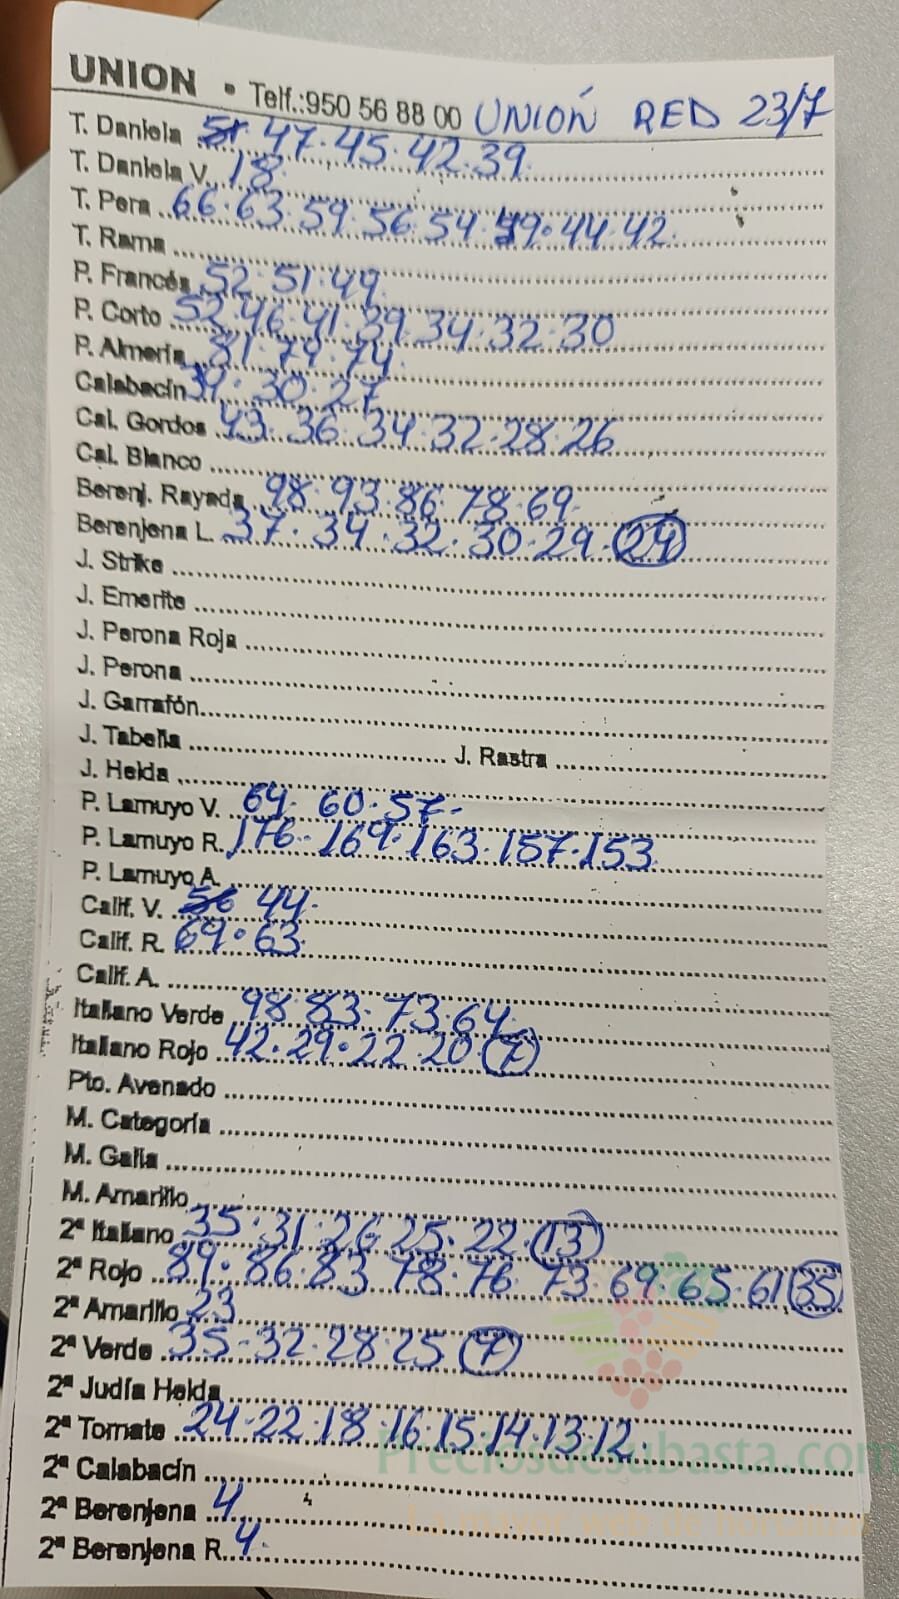 UNION • Telf.:950 56 88 00 UNIÓN RED 23/7
T. Daniela 51 47.45.42.39.
T. Daniela V. 18.
T. Pera 66.63.59.56.54.49.44.42.
T. Rama
P. Francés 52.51.49.
P. Corto 52.46.41.39.34.32.30
P. Almería 81.79.74.
Calabacín 39.30.27
Cal. Gordos 43.36.34.32.28.26
Cal. Blanco
Berenj. Rayada 98.93.86.78.69.
Berenjena L. 37.34.32.30.29.24
J. Strike
J. Emerite
J. Perona Roja
J. Perona
J. Garrafón
J. Tabella J. Rastra
J. Helda
P. Lamuyo V. 64. 60.57.
P. Lamuyo R. 176.169.163.157.153.
P. Lamuyo A.
Calif. V. 56 44.
Calif. R. 69.63.
Calif. A.
Italiano Verde 98 83.73.64.
Italiano Rojo 42.29.22.20.7
Pto. Avenado
M. Categoría
M. Galia
M. Amarillo
2ª Italiano 35.31.26.25.22.13
2ª Rojo 89.86.83 78.76. 73.69.65.61 35
2ª Amarillo 23
2ª Verde 35-32.28.25 7
2ª Judía Helda
2ª Tomate 24.22.18.16.15.14.13.12
2ª Calabacín
2ª Berenjena 4.
2ª Berenjena R. 4.
Preciosdesubasta.com
La mayor web de hortalizas